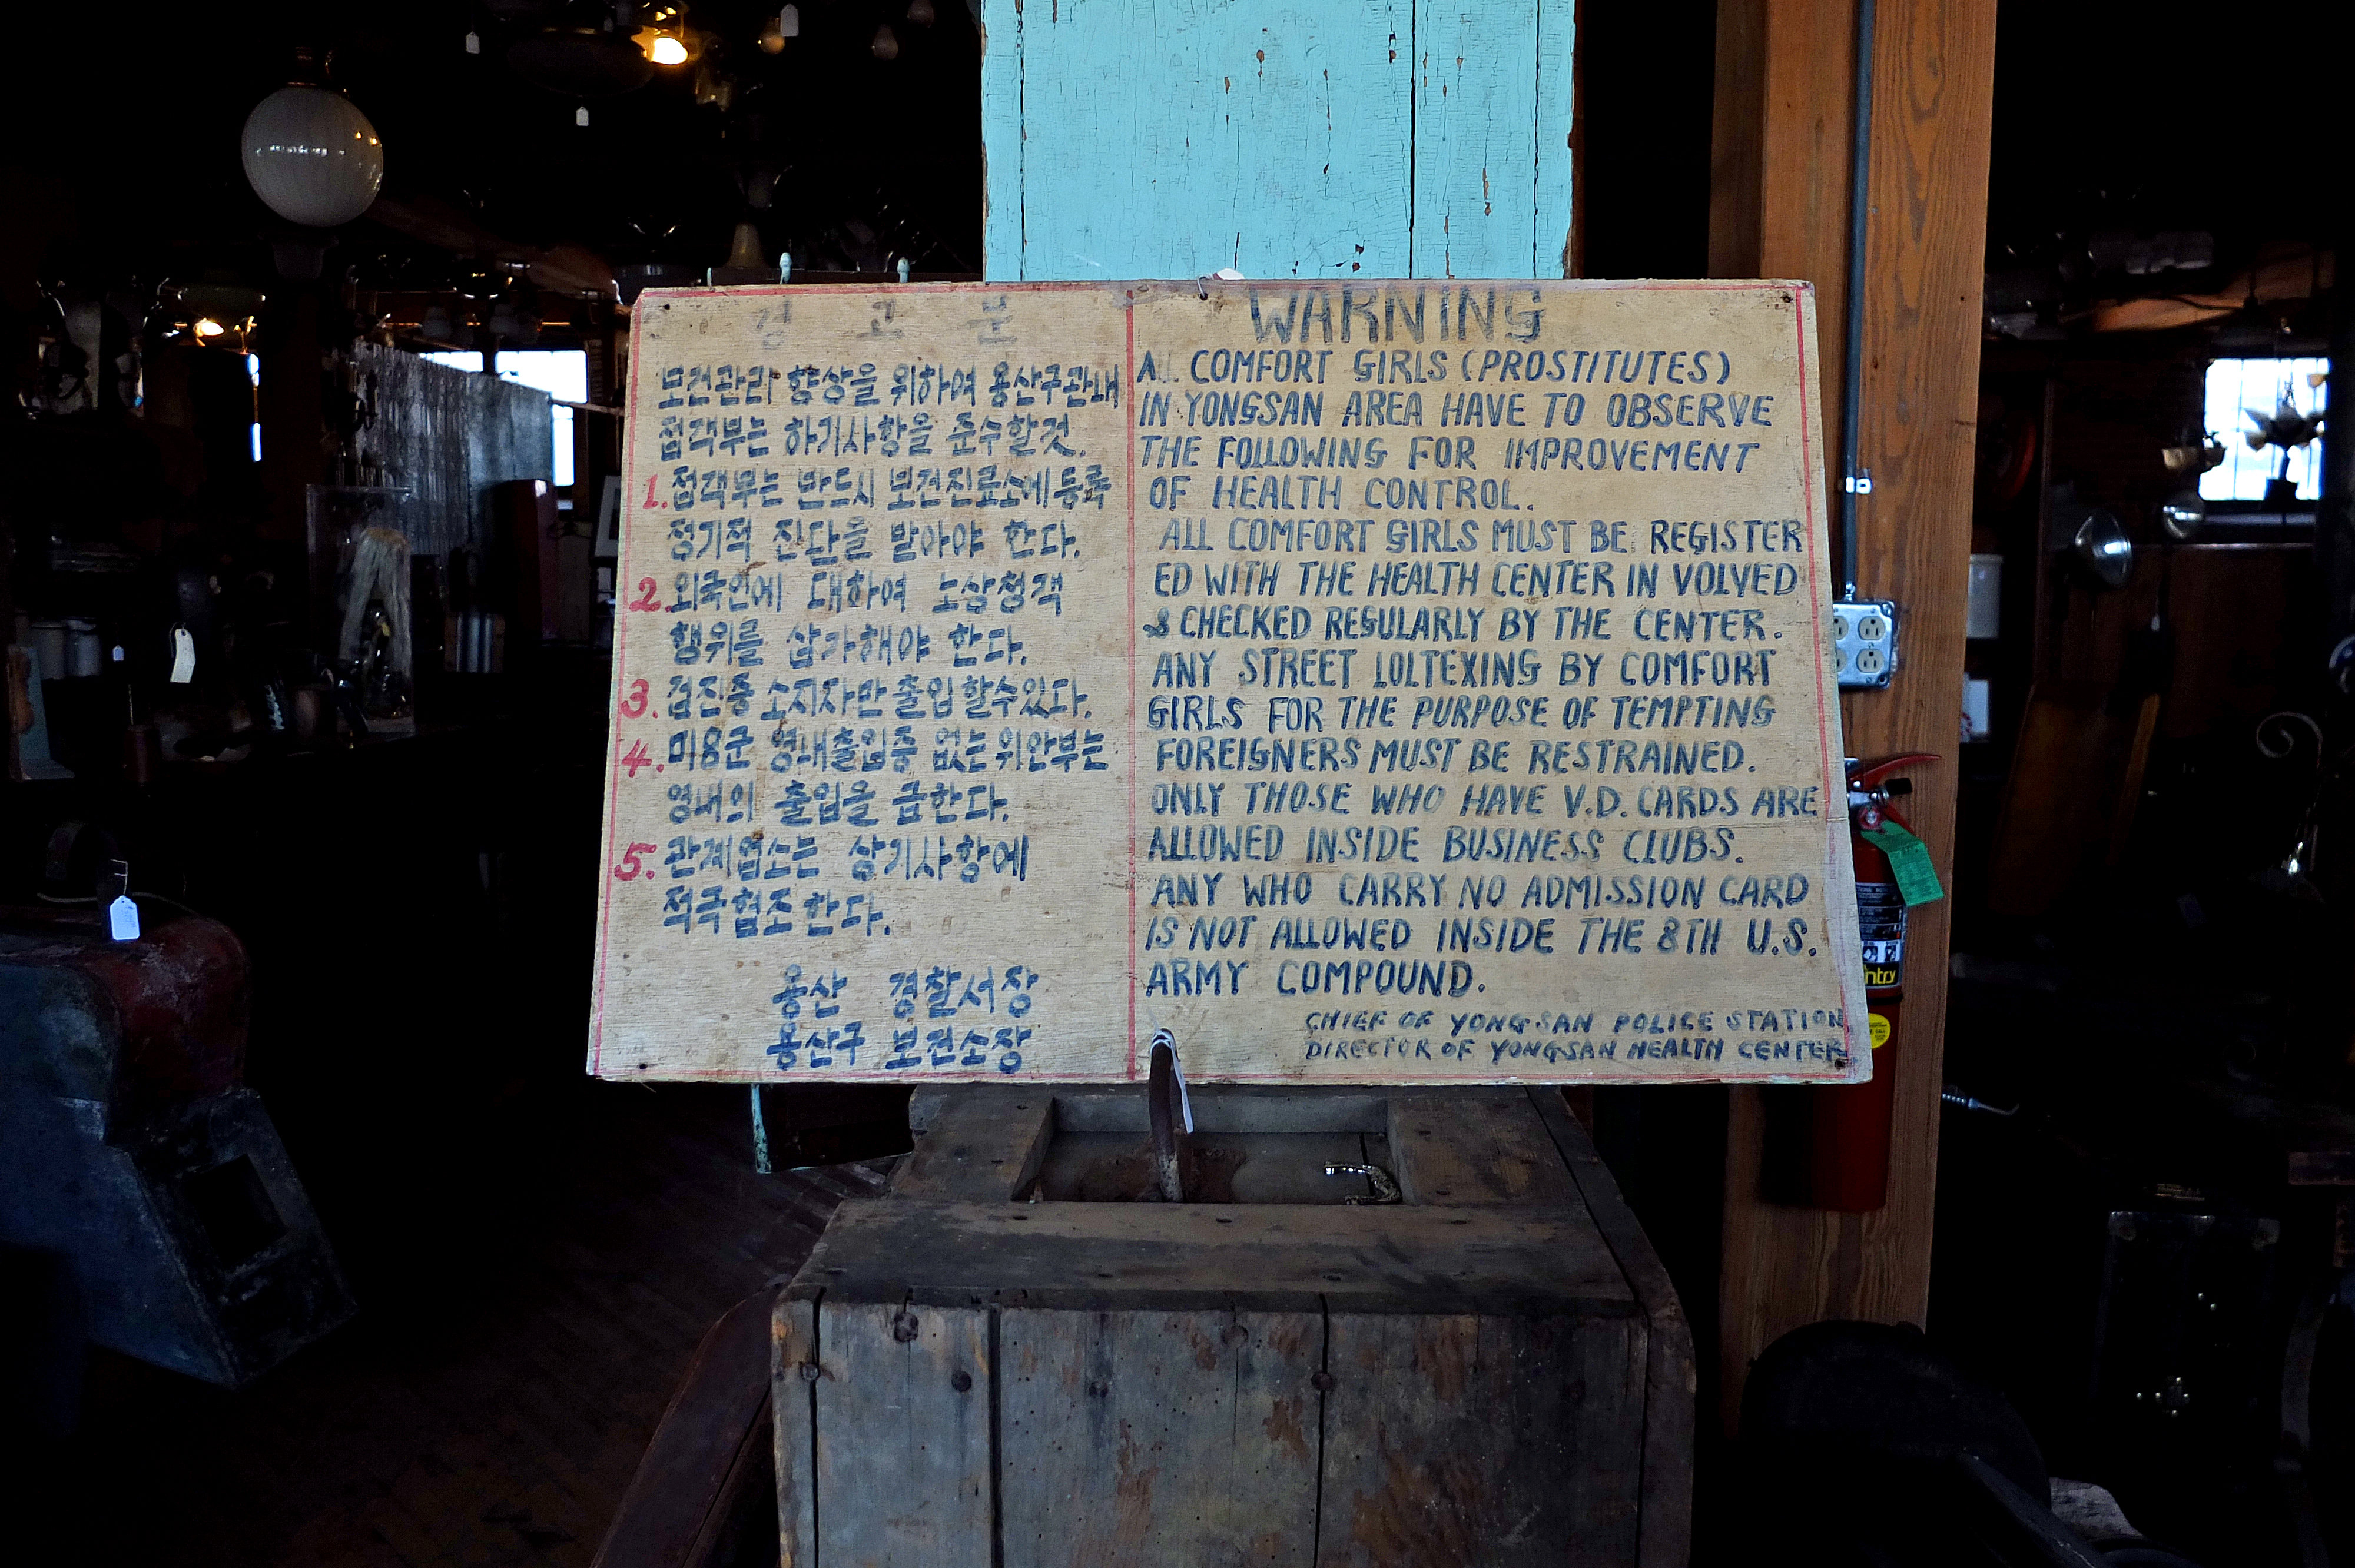 경 고 문
보건관리 향상을 위하여 용산구관내
접객부는 하기사항을 준수할것.
1. 접객부는 반드시 보건진료소에 등록
정기적 진단을 받아야 한다.
2. 외국인에 대하여 노상청객
행위를 삼가해야 한다.
3. 검진증 소지자만 출입할수있다.
4. 미8군 영내출입증 없는 위안부는
영내의 출입을 금한다.
5. 관계업소는 상기사항에
적극협조한다.
용산 경찰서장
용산구 보건소장
WARNING
ALL COMFORT GIRLS (PROSTITUTES)
IN YONGSAN AREA HAVE TO OBSERVE
THE FOLLOWING FOR IMPROVEMENT
OF HEALTH CONTROL.
ALL COMFORT GIRLS MUST BE REGISTER
ED WITH THE HEALTH CENTER IN VOLVED
& CHECKED REGULARLY BY THE CENTER.
ANY STREET LOLTEXING BY COMFORT
GIRLS FOR THE PURPOSE OF TEMPTING
FOREIGNERS MUST BE RESTRAINED.
ONLY THOSE WHO HAVE V.D. CARDS ARE
ALLOWED INSIDE BUSINESS CLUBS.
ANY WHO CARRY NO ADMISSION CARD
IS NOT ALLOWED INSIDE THE 8TH U.S.
ARMY COMPOUND.
CHIEF OF YONGSAN POLICE STATION
DIRECTOR OF YONGSAN HEALTH CENTER